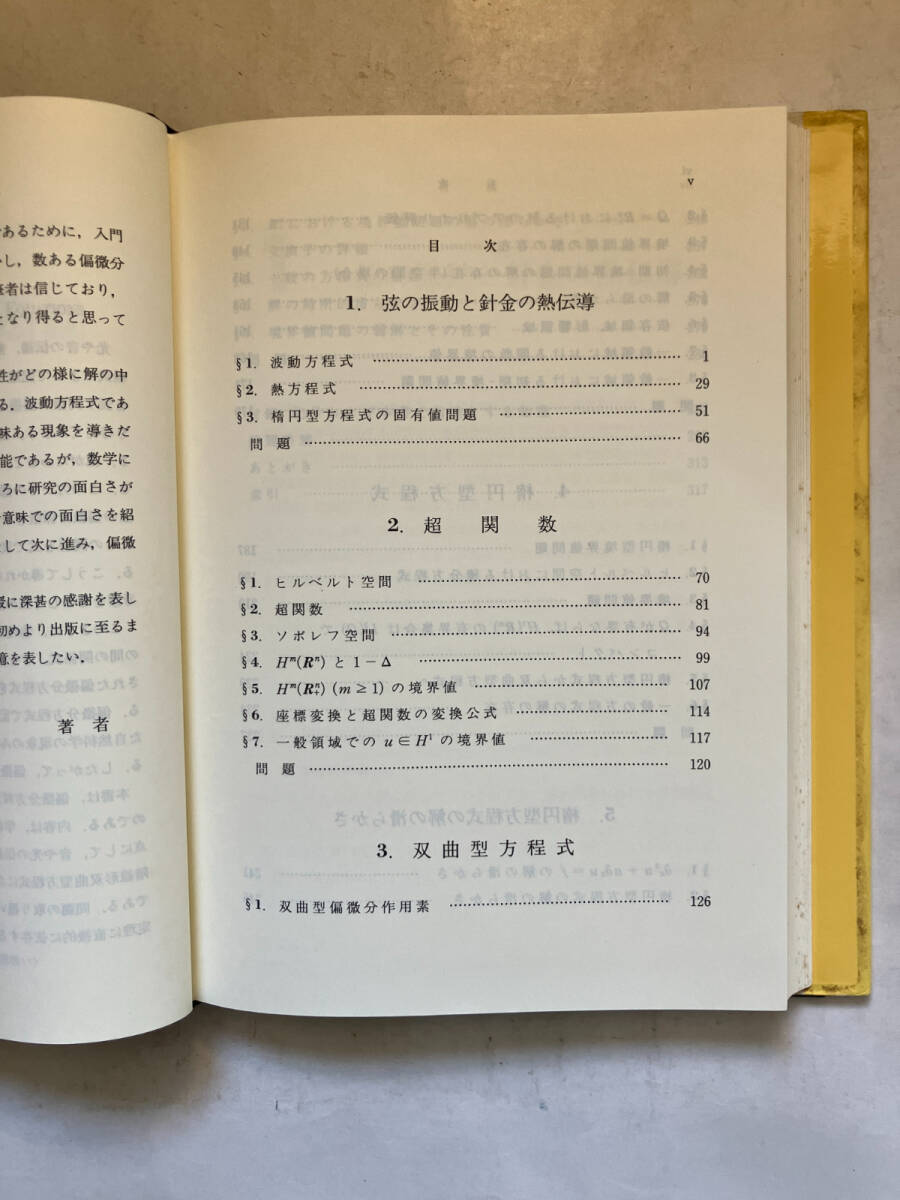 あるために，入門
し，数ある偏微分
者は信じており，
となり得ると思って
性がどの様に解の中
る．波動方程式であ
味ある現象を導きだ
能であるが，数学に
ろに研究の面白さが
意味での面白さを紹
して次に進み，偏微
に深甚の感謝を表し
初めより出版に至るま
意を表したい．
著者
v
目次
1. 弦の振動と針金の熱伝導
§1. 波動方程式 …… 1
§2. 熱方程式 …… 29
§3. 楕円型方程式の固有値問題 …… 51
問題 …… 66
2. 超関数
§1. ヒルベルト空間 …… 70
§2. 超関数 …… 81
§3. ソボレフ空間 …… 94
§4. Hᵐ(Rⁿ) と 1−Δ …… 99
§5. Hᵐ(Rⁿ₊) (m≥1) の境界値 …… 107
§6. 座標変換と超関数の変換公式 …… 114
§7. 一般領域での u∈H¹ の境界値 …… 117
問題 …… 120
3. 双曲型方程式
§1. 双曲型偏微分作用素 …… 126